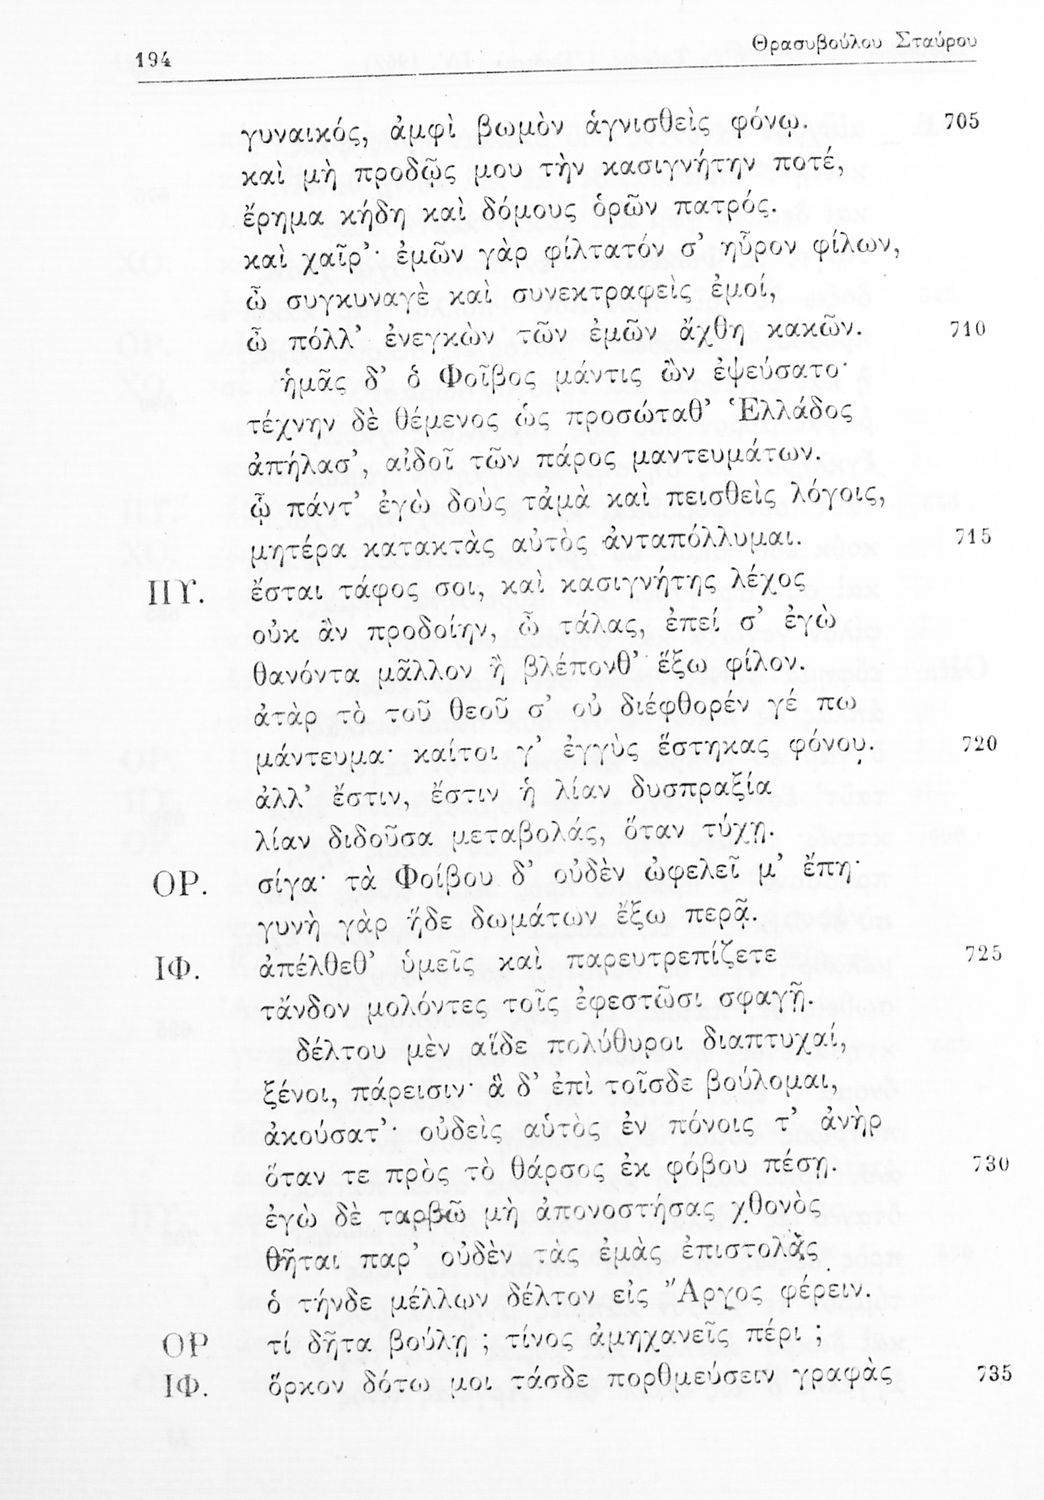 194 Θρασυβούλου Σταύρου
γυναικός, ἀμφὶ βωμὸν ἁγνισθεὶς φόνῳ. 705
καὶ μὴ προδῷς μου τὴν κασιγνήτην ποτέ,
ἔρημα κήδη καὶ δόμους ὁρῶν πατρός.
καὶ χαῖρ’· ἐμῶν γὰρ φίλτατόν σ’ ηὗρον φίλων,
ὦ συγκυναγὲ καὶ συνεκτραφεὶς ἐμοί,
ὦ πόλλ’ ἐνεγκὼν τῶν ἐμῶν ἄχθη κακῶν. 710
ἡμᾶς δ’ ὁ Φοῖβος μάντις ὢν ἐψεύσατο·
τέχνην δὲ θέμενος ὡς προσώταθ’ Ἑλλάδος
ἀπήλασ’, αἰδοῖ τῶν πάρος μαντευμάτων.
ᾧ πάντ’ ἐγὼ δοὺς τἀμὰ καὶ πεισθεὶς λόγοις,
μητέρα κατακτὰς αὐτὸς ἀνταπόλλυμαι. 715
ΠΥ. ἔσται τάφος σοι, καὶ κασιγνήτης λέχος
οὐκ ἂν προδοίην, ὦ τάλας, ἐπεί σ’ ἐγὼ
θανόντα μᾶλλον ἢ βλέπονθ’ ἕξω φίλον.
ἀτὰρ τὸ τοῦ θεοῦ σ’ οὐ διέφθορέν γέ πω
μάντευμα· καίτοι γ’ ἐγγὺς ἕστηκας φόνου. 720
ἀλλ’ ἔστιν, ἔστιν ἡ λίαν δυσπραξία
λίαν διδοῦσα μεταβολάς, ὅταν τύχῃ.
ΟΡ. σίγα· τὰ Φοίβου δ’ οὐδὲν ὠφελεῖ μ’ ἔπη·
γυνὴ γὰρ ἥδε δωμάτων ἔξω περᾷ.
ΙΦ. ἀπέλθεθ’ ὑμεῖς καὶ παρευτρεπίζετε 725
τἄνδον μολόντες τοῖς ἐφεστῶσι σφαγῇ.
δέλτου μὲν αἵδε πολύθυροι διαπτυχαί,
ξένοι, πάρεισιν· ἃ δ’ ἐπὶ τοῖσδε βούλομαι,
ἀκούσατ’· οὐδεὶς αὑτὸς ἐν πόνοις τ’ ἀνὴρ
ὅταν τε πρὸς τὸ θάρσος ἐκ φόβου πέσῃ. 730
ἐγὼ δὲ ταρβῶ μὴ ἀπονοστήσας χθονὸς
θῆται παρ’ οὐδὲν τὰς ἐμὰς ἐπιστολὰς
ὁ τήνδε μέλλων δέλτον εἰς Ἄργος φέρειν.
ΟΡ τί δῆτα βούλῃ ; τίνος ἀμηχανεῖς πέρι ;
ΙΦ. ὅρκον δότω μοι τάσδε πορθμεύσειν γραφὰς 735